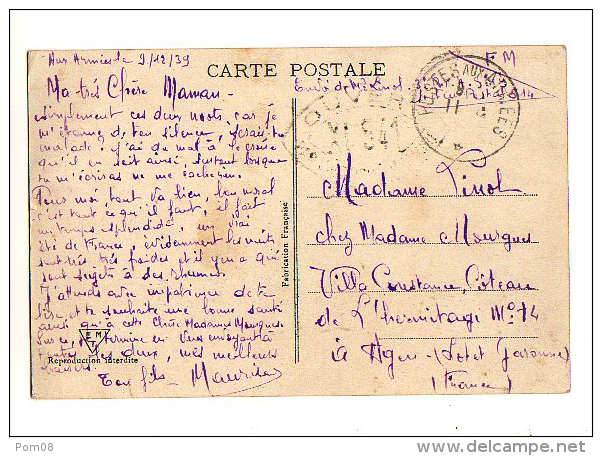 Aux Armées le 9/12/39
CARTE POSTALE
Ma très Chère Maman -
simplement ces deux mots, car je
m'étonne de ton silence, serais-tu
malade? j'ai de mal à le croire
qu'il en soit ainsi, surtout lorsque
tu m'écrivais ne me cacher rien.
Pour moi tout va bien, bon moral
c'est tout ce qu'il faut, il fait
un temps splendide, un vrai
Été de France, évidemment les nuits
sont très, très froides et il y en a qui
sont sujets à des rhumes.
J'attends avec impatience de te
lire, et te souhaite une bonne santé
ainsi qu'à cette Chère Madame Mourgues
Sur ce, termine en Vous envoyant à
toutes les deux, mes meilleurs
baisers.
Ton fils - Maurice
EMT
Reproduction interdite
Fabrication Française
F M
POSTES AUX ARMÉES
Madame Pinol
chez Madame Mourgues
Villa Constance, Côteau
de L'hermitage No: 74
à Agen - (Lot et Garonne)
(France)
Pom08
delcampe.net